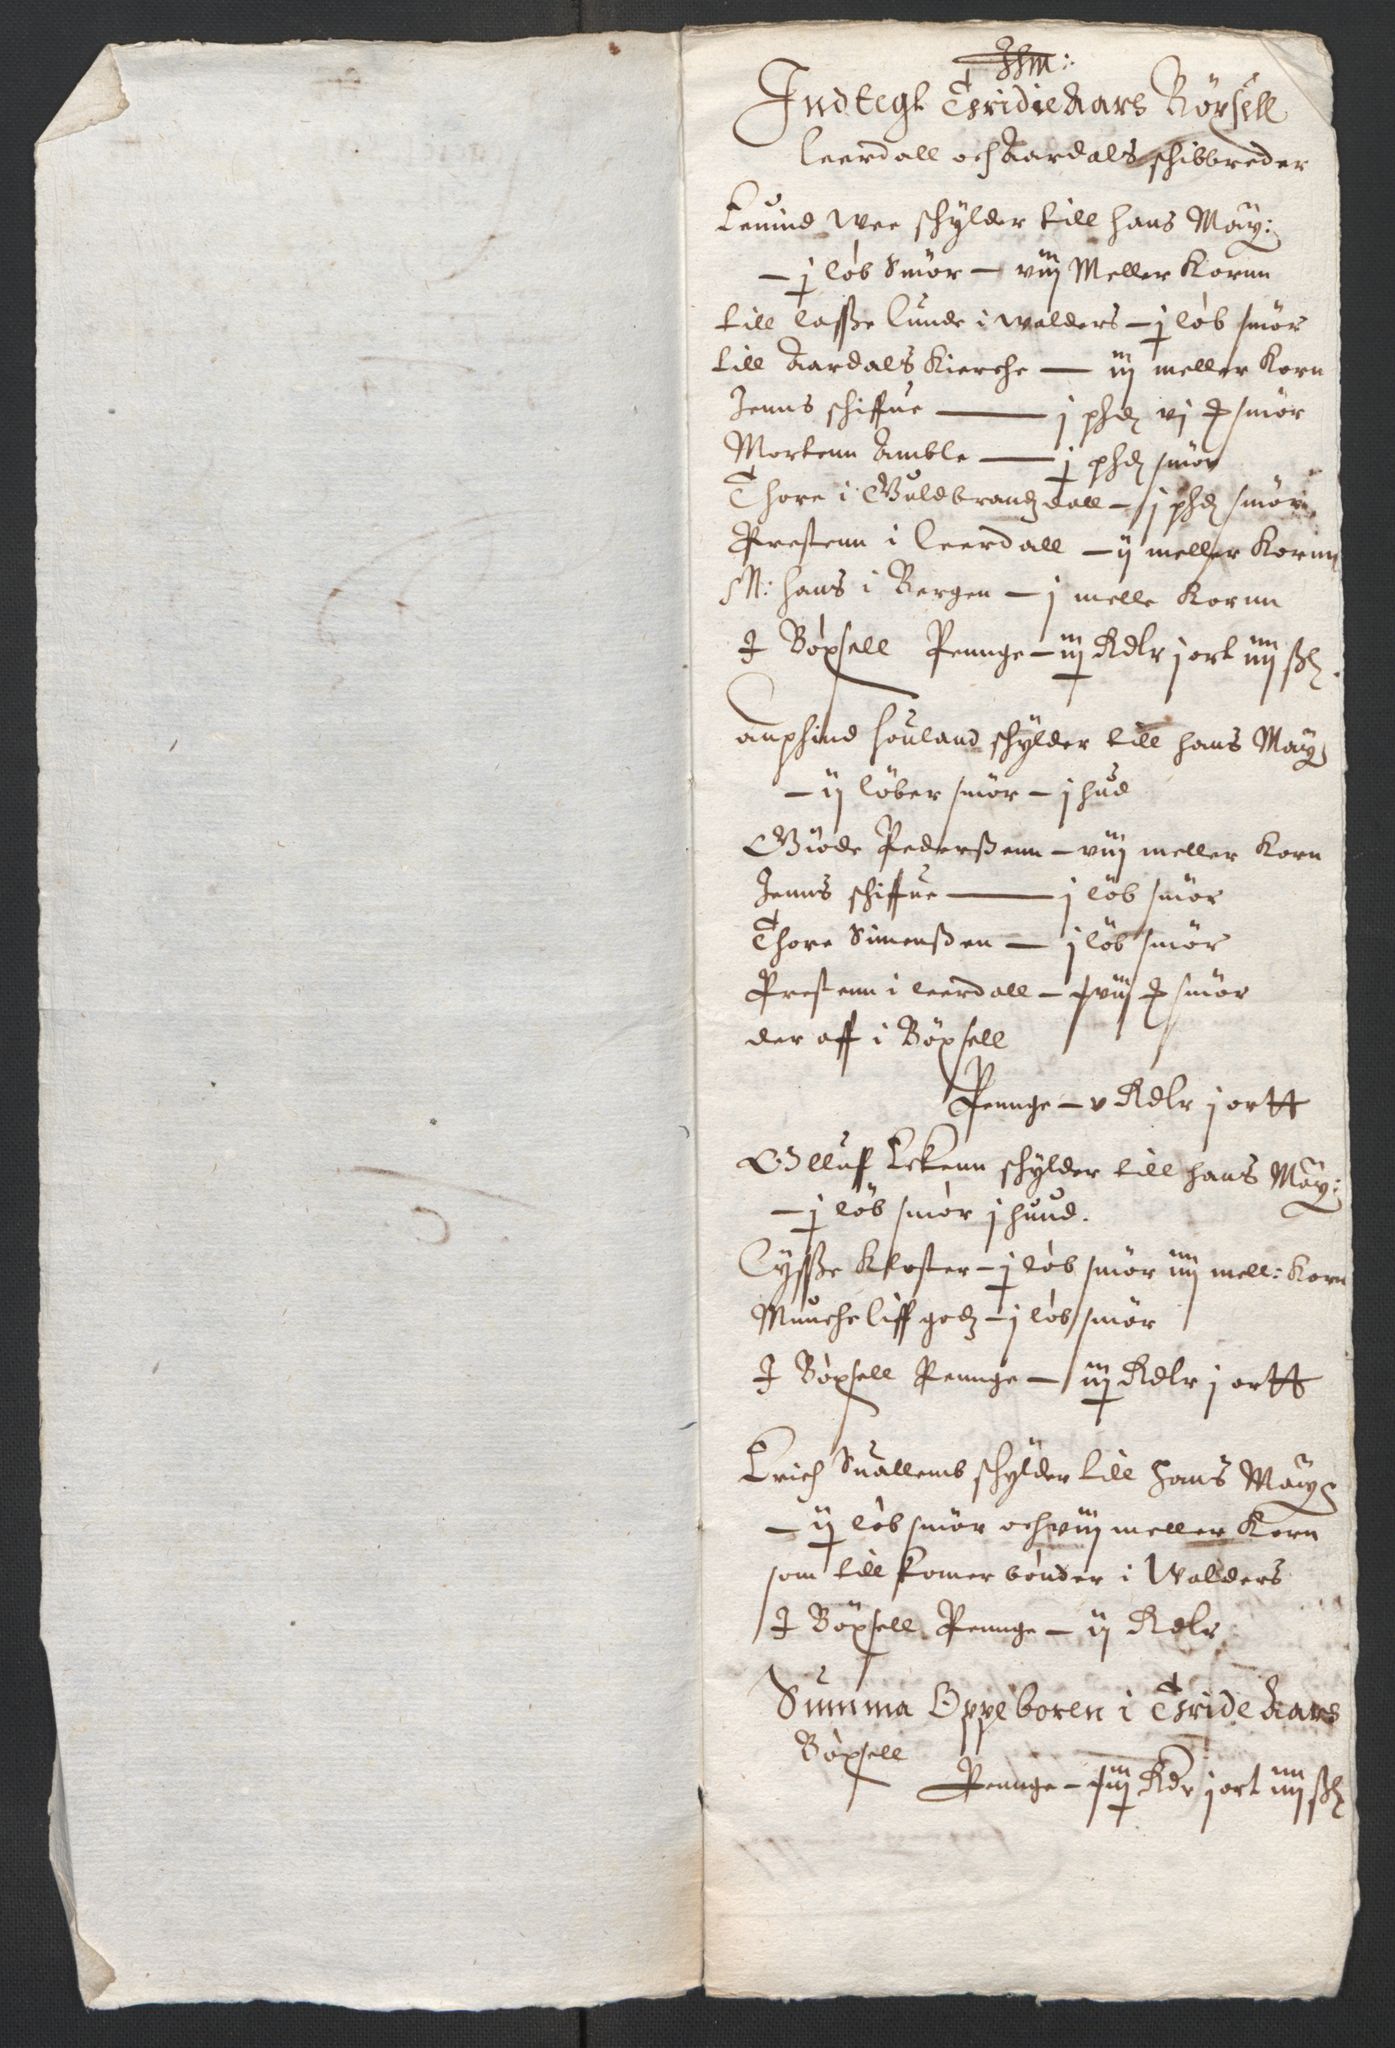 Jhm:
Indtegt Thridie Aars Böxsell
Leerdall och Aardals schibbreder
Euind Wee schÿlder till hans Maÿ:
— j löb Smör — viij Meller Kornn
till Lasse Lunde i Walders — j löb smör
till Aardals Kierche — iij meller Korn
Jenns schiffue — j phd vj ℔ smör
Mortenn Amble — j phd smör
Thore i Guldbrandzdall — j phd smör
Prestenn i Leerdall — ij meller Kornn
M: hans i Bergen — j melle Kornn
J Böxsell Pennge — iij Rdlr j ort iiij ß
Anphind houland schÿlder till hans Maÿ
— ij löber smör — j hud
Giöde Pederssenn — viij meller Korn
Jenns schiffue — j löb smör
Thore Simenssen — j löb smör
Prestenn i Leerdall — xviij ℔ smör
der aff i Böxsell
Pennge — v Rdlr j ortt
Olluf Ekenn schÿlder till hans Maÿ:
— j löb smör j huud.
Lÿsse Kloster — j löb smör iiij mell: Korn
Muncheliff godz — j löb smör
J Böxsell Pennge — iij Rdlr j ortt
Erich Suallemb schÿlder till hans Maÿ
— ij löb smör och viij meller Korn
som till komer bönder i Walders
J Böxsell Pennge — ij Rdlr
Summa Oppeboren i Thride Aars
Böxsell
Pennge — xiij Rdr j ort iiij ß